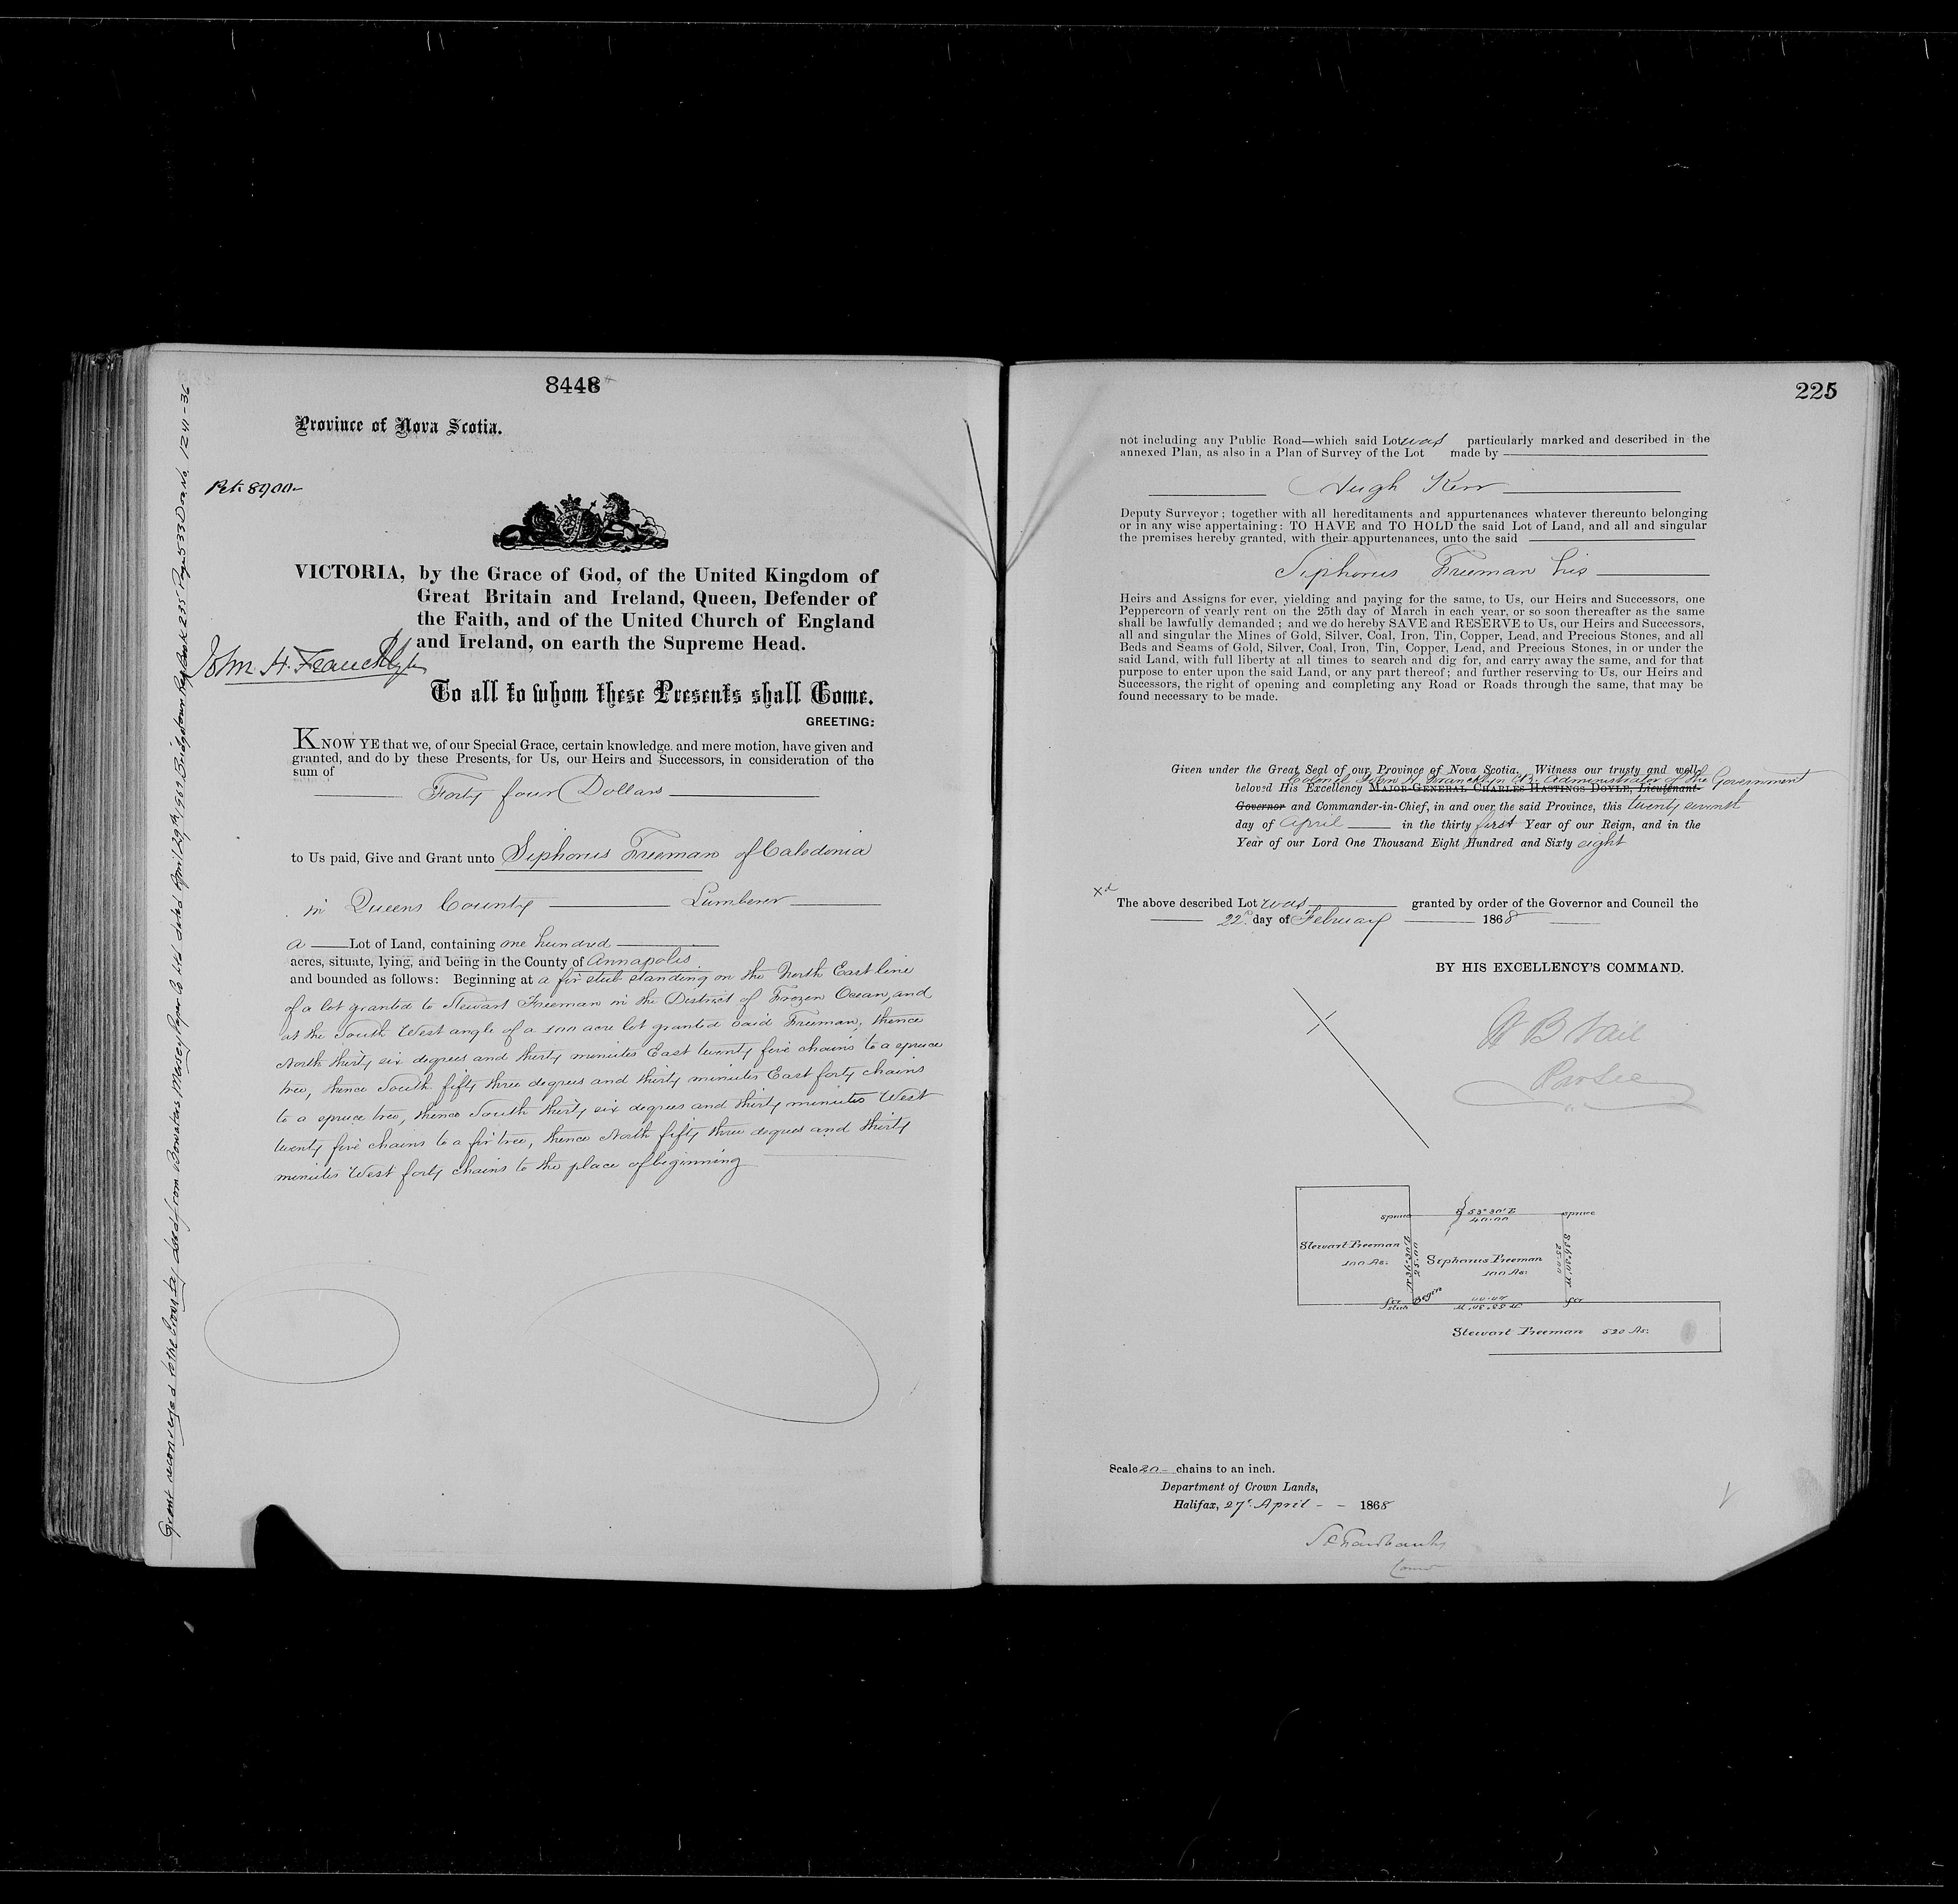 8448
Province of Nova Scotia.
Pet: 8900
VICTORIA, by the Grace of God, of the United Kingdom of
Great Britain and Ireland, Queen, Defender of
the Faith, and of the United Church of England
and Ireland, on earth the Supreme Head.
John H. Francklyn
To all to whom these Presents shall Come.
GREETING:
KNOW YE that we, of our Special Grace, certain knowledge. and mere motion, have given and
granted, and do by these Presents, for Us, our Heirs and Successors, in consideration of the
sum of
Forty four Dollars
to Us paid, Give and Grant unto Siphorus Freeman of Caledonia
in Queens County Lumberer
a Lot of Land, containing one hundred
acres, situate, lying, and being in the County of Annapolis
and bounded as follows: Beginning at a fir stub standing on the North East line
of a lot granted to Stewart Freeman in the District of Frozen Ocean, and
at the South West angle of a 100 acre lot granted said Freeman, thence
North thirty six degrees and thirty minutes East twenty five chains to a spruce
tree, thence South fifty three degrees and thirty minutes East forty chains
to a spruce tree, thence South thirty six degrees and thirty minutes West
twenty five chains to a fir tree, thence North fifty three degrees and thirty
minutes West forty chains to the place of beginning
Grant reconveyed to the Crown by deed from Bowaters Mersey Paper Co Ltd dated April 29th 1962 Bridgetown Reg Book 235 Page 533 Doc No. 1241-36
225
not including any Public Road—which said Lot was particularly marked and described in the
annexed Plan, as also in a Plan of Survey of the Lot made by
Hugh Kerr
Deputy Surveyor; together with all hereditaments and appurtenances whatever thereunto belonging
or in any wise appertaining: TO HAVE and TO HOLD the said Lot of Land, and all and singular
the premises hereby granted, with their appurtenances, unto the said
Siphorus Freeman his
Heirs and Assigns for ever, yielding and paying for the same, to Us, our Heirs and Successors, one
Peppercorn of yearly rent on the 25th day of March in each year, or so soon thereafter as the same
shall be lawfully demanded; and we do hereby SAVE and RESERVE to Us, our Heirs and Successors,
all and singular the Mines of Gold, Silver, Coal, Iron, Tin, Copper, Lead, and Precious Stones, and all
Beds and Seams of Gold, Silver, Coal, Iron, Tin, Copper, Lead, and Precious Stones, in or under the
said Land, with full liberty at all times to search and dig for, and carry away the same, and for that
purpose to enter upon the said Land, or any part thereof; and further reserving to Us, our Heirs and
Successors, the right of opening and completing any Road or Roads through the same, that may be
found necessary to be made.
Given under the Great Seal of our Province of Nova Scotia. Witness our trusty and well
Colonel John H. Francklyn CB. Administrator of the Government
beloved His Excellency MAJOR-GENERAL CHARLES HASTINGS DOYLE, Lieutenant-
Governor and Commander-in-Chief, in and over the said Province, this twenty seventh
day of April in the thirty first Year of our Reign, and in the
Year of our Lord One Thousand Eight Hundred and Sixty eight
Xd
The above described Lot was granted by order of the Governor and Council the
22d day of February 1868
BY HIS EXCELLENCY'S COMMAND.
W B Vail
Pro Sec
spruce
S 53° 30' E
40.00
spruce
Stewart Freeman
100 As:
N 36° 30' E
25.00
Sephorus Freeman
100 As:
S 36° 30' W
25.00
Fir
stub
Begin
N 53° 30' W
40.00
fir
Stewart Freeman 520 As:
Scale 20 chains to an inch.
Department of Crown Lands,
Halifax, 27th April 1868
S P Fairbanks
Comr